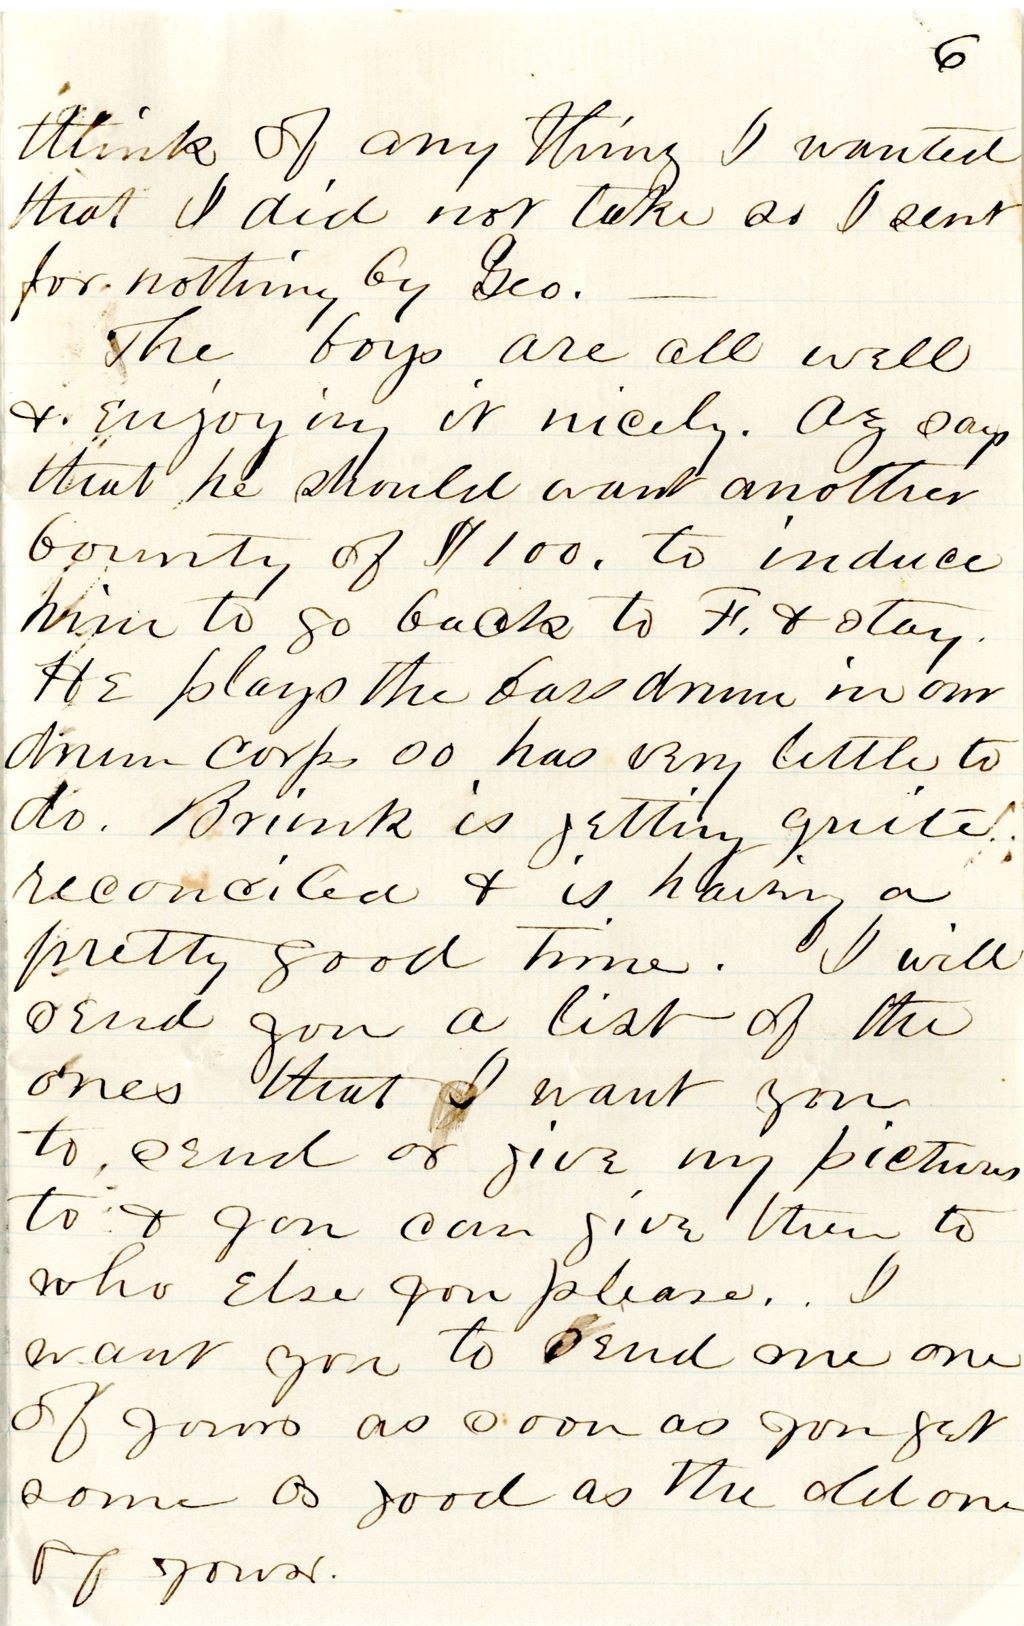 6
think of any thing I wanted
that I did not take so I sent
for nothing by Geo. —
The boys are all well
& enjoying it nicely. Oz says
that he should want another
bounty of $100. to induce
him to go back to F. & stay.
He plays the bass drum in our
drum corps so has very little to
do. Brink is getting quite
reconciled & is having a
pretty good time. I will
send you a list of the
ones that I want you
to send or give my pictures
to & you can give them to
who else you please. I
want you to send me one
of yours as soon as you get
some as good as the old one
of yours.